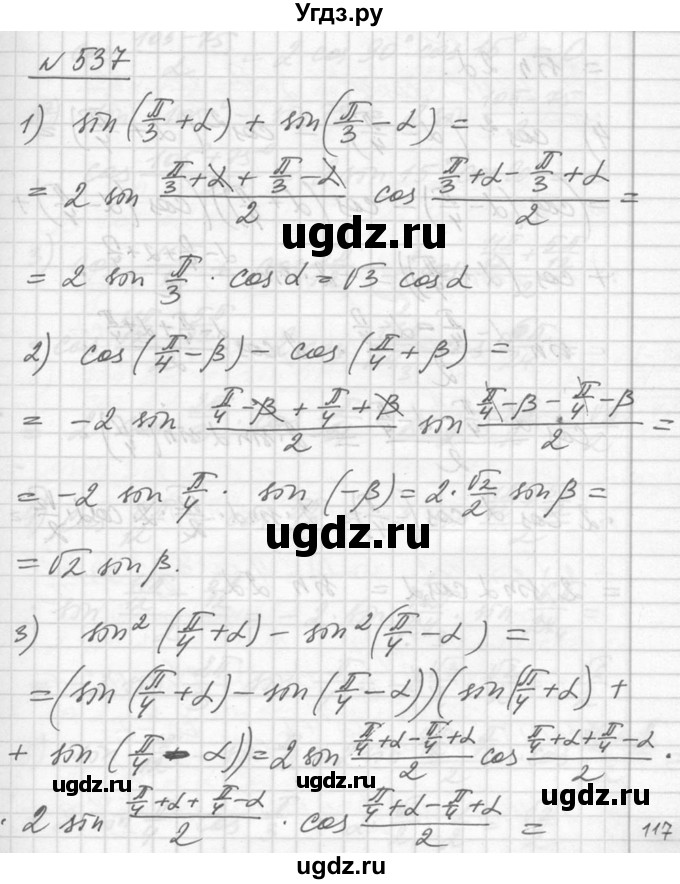 Угдз.ру
№ 537
1) sin(π/3 + α) + sin(π/3 − α) =
= 2 sin (π/3 + α + π/3 − α)/2 cos (π/3 + α − π/3 + α)/2 =
ugdz.ru
= 2 sin π/3 · cos α = √3 cos α
2) cos(π/4 − β) − cos(π/4 + β) =
= −2 sin (π/4 − β + π/4 + β)/2 sin (π/4 − β − π/4 − β)/2 =
= −2 sin π/4 · sin (−β) = 2 · √2/2 sin β =
ugdz.ru
= √2 sin β.
3) sin² (π/4 + α) − sin² (π/4 − α) =
= (sin (π/4 + α) − sin (π/4 − α)) (sin (π/4 + α) +
+ sin (π/4 − α)) = 2 sin (π/4 + α − π/4 + α)/2 cos (π/4 + α + π/4 − α)/2 ·
ugdz.ru ugdz.ru
· 2 sin (π/4 + α + π/4 − α)/2 · cos (π/4 + α − π/4 + α)/2 =
117
ugdz.ru